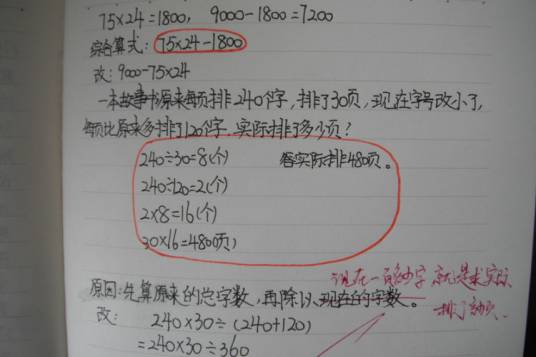 75×24=1800, 9000-1800=7200
综合算式: 75×24-1800
改: 9000-75×24
一本故事书原来每页排240个字,排了30页,现在字号改小了,
每页比原来多排了120个字,实际排了多少页?
240÷30=8(个) 答实际排480页。
240÷120=2(个)
2×8=16(个)
30×16=480(页)
现在一页的字 就是求实际
原因:先算原来的总字数,再除以现在的字数。
排了
改: 240×30÷(240+120)
=240×30÷360